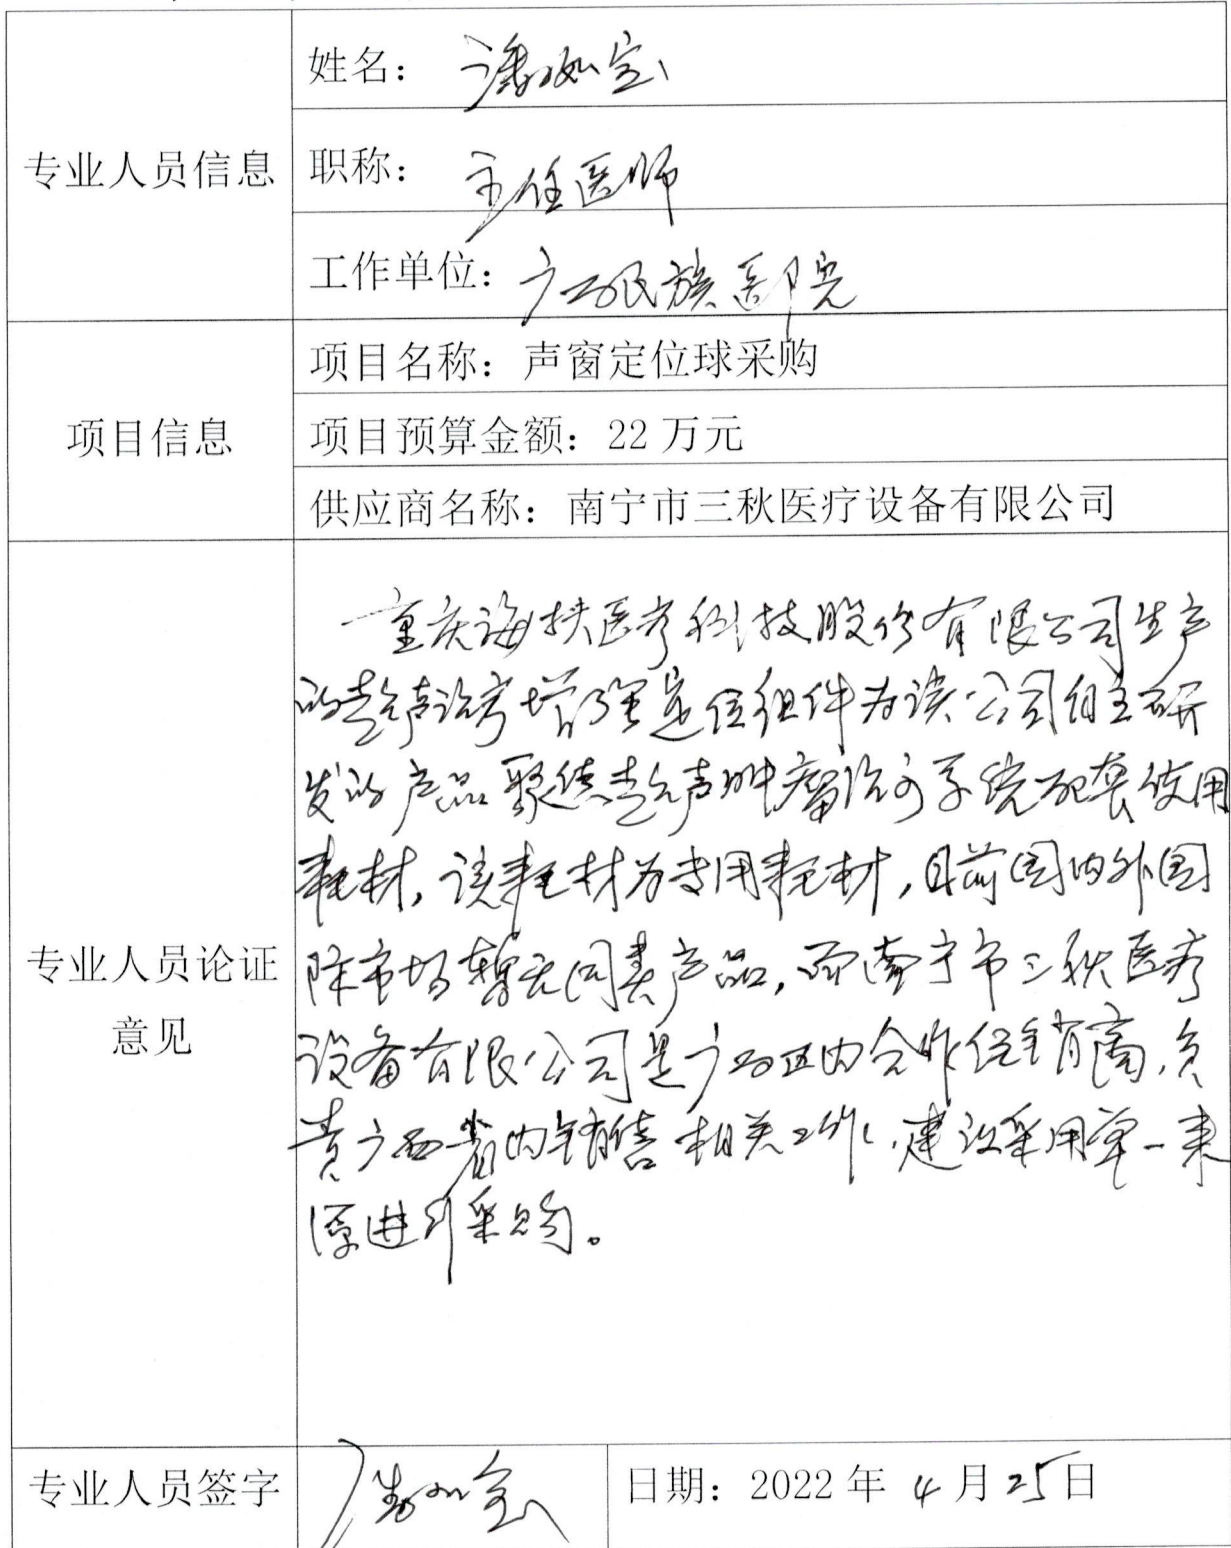 专业人员信息
姓名：潘如宝
职称：主任医师
工作单位：广西民族医院
项目信息
项目名称：声窗定位球采购
项目预算金额：22万元
供应商名称：南宁市三秋医疗设备有限公司
专业人员论证
意见
重庆海扶医疗科技股份有限公司生产
的超声治疗增强定位组件为该公司自主研
发的产品聚焦超声肿瘤治疗系统配套使用
耗材，该耗材为专用耗材，目前国内外国
际市场暂无同类产品，而南宁市三秋医疗
设备有限公司是广西区内合作经销商，负
责广西省内销售相关工作，建议采用单一来
源进行采购。
专业人员签字
潘如宝
日期：2022年4月25日